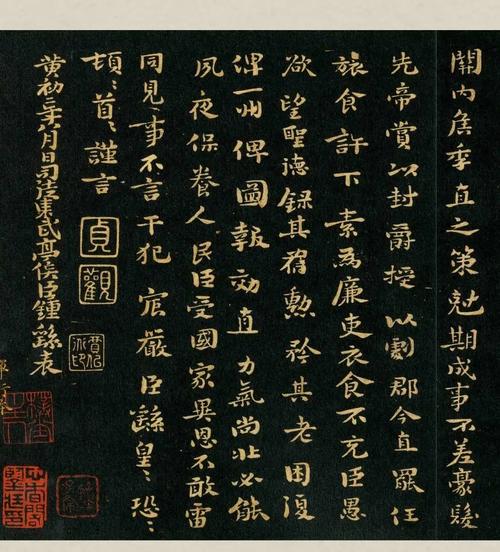 關內矦季直之策尅期成事不差豪髮
先帝賞以封爵授以劇郡今直罷任
旅食許下素為廉吏衣食不充臣愚
欲望聖德錄其舊勳矜其老困復
俾一州俾圖報効直力氣尚壯必能
夙夜保養人民臣受國家異恩不敢雷
同見事不言干犯宸嚴臣繇皇〻恐〻
頓〻首〻謹言
黃初二年八月日司徒東武亭侯臣鍾繇表
貞觀